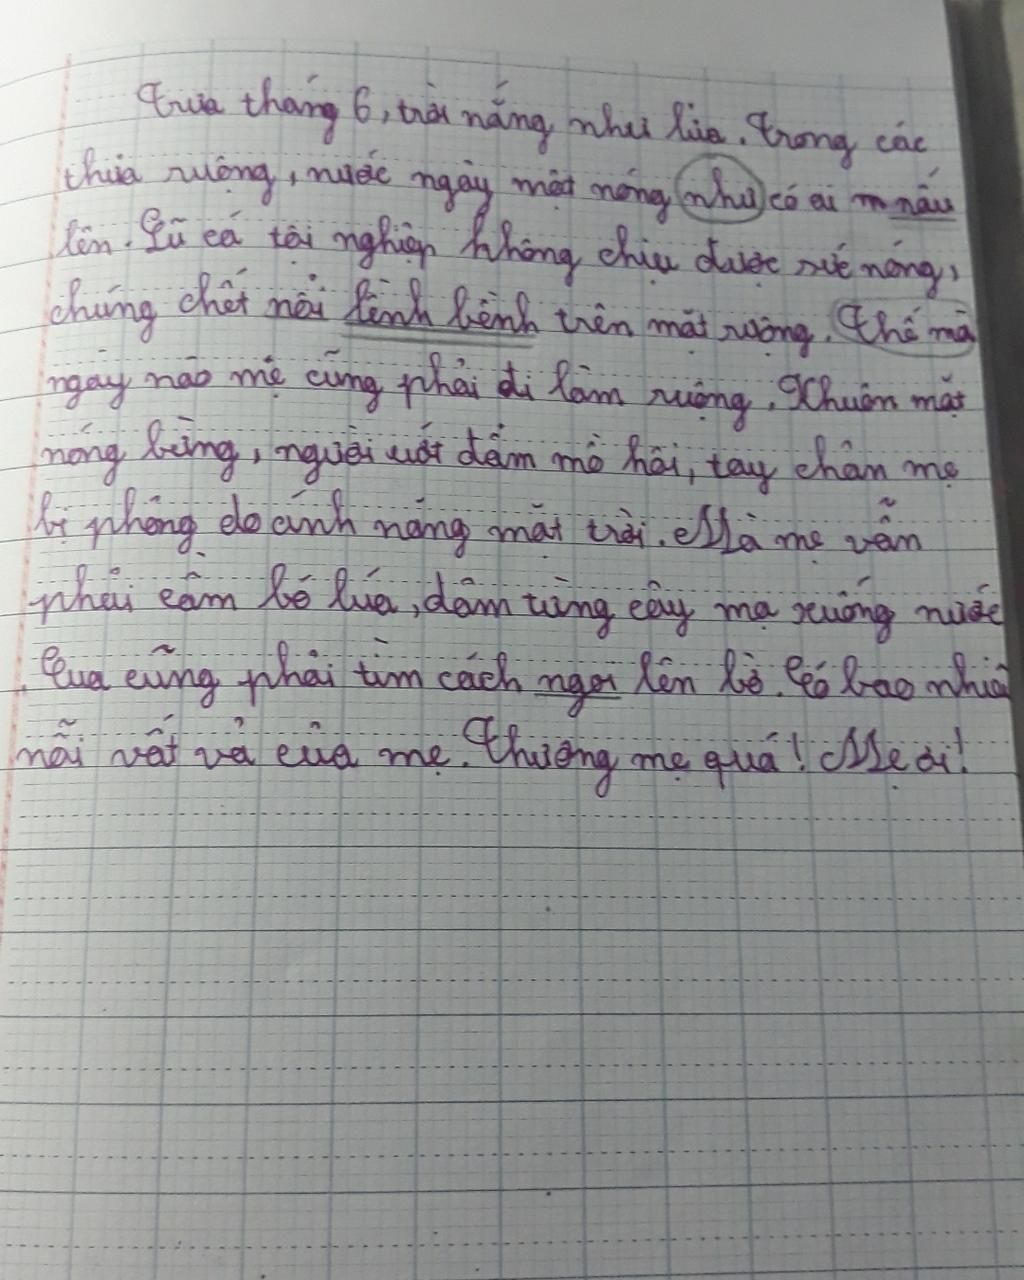 Trưa tháng 6, trời nắng như lửa. Trong các
thửa ruộng, nước ngày một nóng như có ai nấu
lên. Lũ cá tội nghiệp không chịu được sức nóng,
chúng chết nổi lềnh bềnh trên mặt ruộng. Thế mà
ngày nào mẹ cũng phải đi làm ruộng. Khuôn mặt
nóng bừng, người ướt đẫm mồ hôi, tay chân mẹ
bị phồng do ánh nắng mặt trời. Mà mẹ vẫn
phải cầm bó lúa, dâm từng cây mạ xuống nước
. Cua cũng phải tìm cách ngoi lên bờ. Có bao nhiêu
nỗi vất vả của mẹ. Thương mẹ quá! Mẹ ơi!